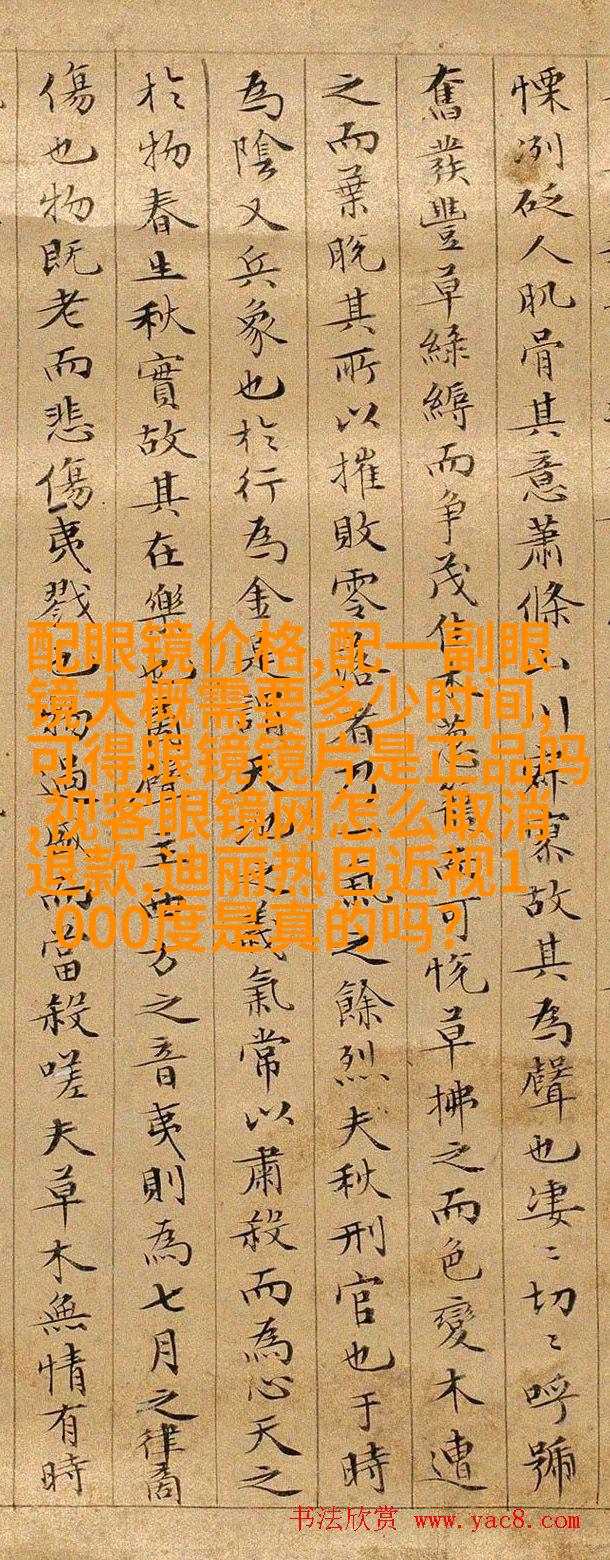 慄冽砭人肌骨其意蕭條山川寂寥故其為聲也淒〻切〻呼號
奮發豐草綠縟而争茂佳木葱蘢而可悅草拂之而色變木遭
之而葉脫其所以摧敗零落者乃一氣之餘烈夫秋刑官也于時
為陰又兵象也於行為金是謂天地之義氣常以肅殺而為心天之
於物春生秋實故其在樂也商聲主西方之音夷則為七月之律商
傷也物既老而悲傷夷戮也物過盛而當殺嗟夫草木無情有時
配眼镜价格,配一副眼
镜大概需要多少时间,
可得眼镜镜片是正品吗
,视客眼镜网怎么取消
退款,迪丽热巴近视1
000度是真的吗?
书法欣赏 www.yac8.com